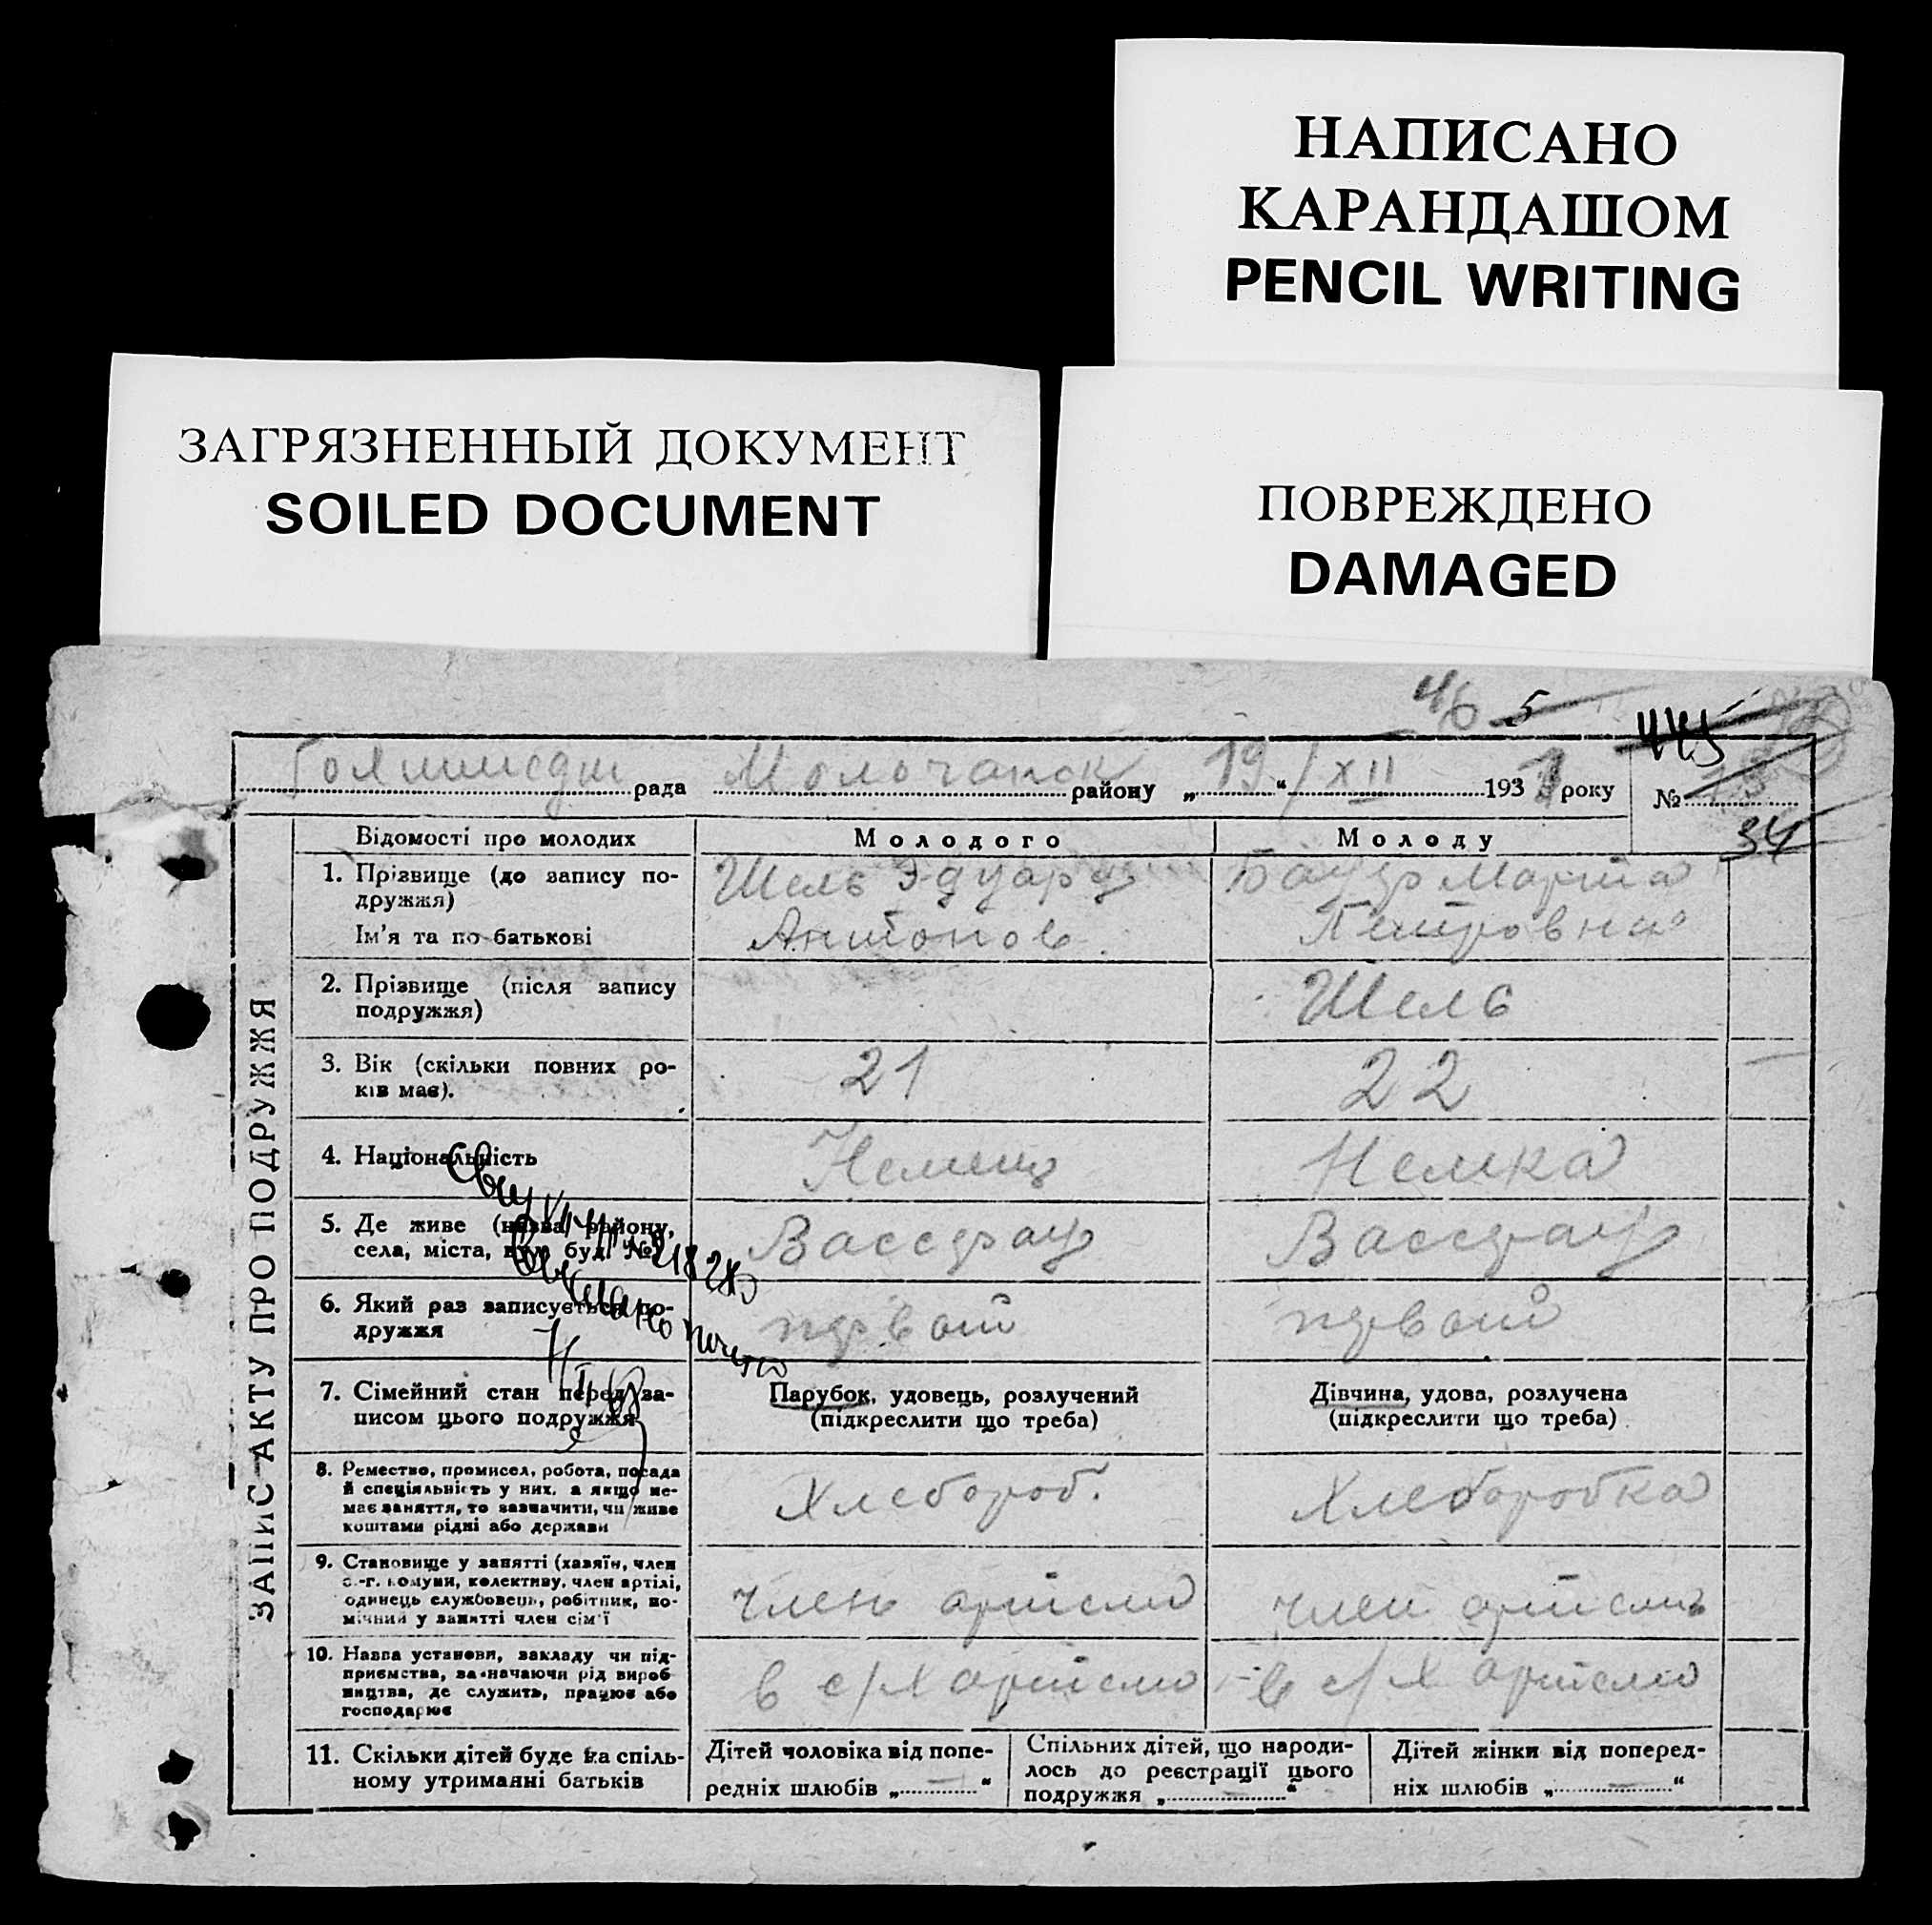 НАПИСАНО
КАРАНДАШОМ
PENCIL WRITING
ЗАГРЯЗНЕННЫЙ ДОКУМЕНТ
SOILED DOCUMENT
ПОВРЕЖДЕНО
DAMAGED
46 5 445
рада Молочанск району „19“ / XII 1931 року № 13
34
ЗАПИС АКТУ ПРО ПОДРУЖЖЯ
Відомості про молодих Молодого Молоду
1. Прізвище (до запису по-
дружжя)
Ім'я та по-батькові
Шель Эдуард
Антонов.
Бауэр Марта
Петровна
2. Прізвище (після запису
подружжя)
Шель
3. Вік (скільки повних ро-
ків має).
21 22
4. Національність
Немец Немка
5. Де живе (назва району,
села, міста, вул. буд. №)
Вассерау Вассерау
6. Який раз записується по-
дружжя
первый первый
7. Сімейний стан перед за-
писом цього подружжя
Парубок, удовець, розлучений
(підкреслити що треба)
Дівчина, удова, розлучена
(підкреслити що треба)
8. Ремество, промисел, робота, посада
й спеціяльність у них, а якщо не-
має заняття, то зазначити, чи живе
коштами рідні або держави
Хлебороб. Хлеборобка
9. Становище у занятті (хазяїн, член
с.-г. комуни, колективу, член артілі,
одинець службовець, робітник, по-
мічний у занятті член сім'ї
член артели член артели
10. Назва установи, закладу чи під-
приємства, зазначаючи рід вироб-
ництва, де служить, працює або
господарює
в с/х артели в с/х артели
11. Скільки дітей буде на спіль-
ному утриманні батьків
Дітей чоловіка від попе-
редніх шлюбів „ — “
Спільних дітей, що народи-
лось до реєстрації цього
подружжя „ “
Дітей жінки від поперед-
ніх шлюбів „ — “